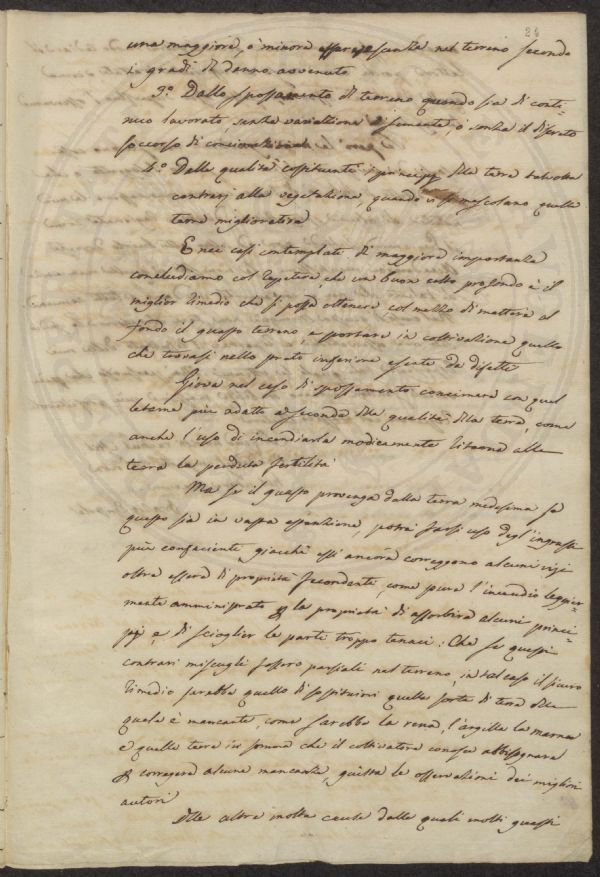 24
una maggiore, o minore essenza nel terreno secondo
i gradi di danno avvenuto
3.o Dallo spossamento di terreno quando sia di conti-
nuo lavorato, senza variazione di semente, o senza il discreto
soccorso di concimazioni
4.o Dalle qualità costituenti i principj della terra talvolta
contrarj alla vegetazione, quando vi si mescolano quelle
terre miglioratrici
E nei casi contemplati di maggiore importanza
concludiamo col ripetere, che un buon colto profondo è il
miglior rimedio che si possa ottenere, col mezzo di mettere al
fondo il guasto terreno, e portare in coltivazione quello
che trovasi nello strato inferiore esente da difetti
Giova nel caso di spossamento concimare con quel
letame più adatto a seconda della qualità della terra, come
anche l'uso di incendiarla modicamente ritorna alla
terra la perduta fertilità
Ma se il guasto provenga dalla terra medesima se
questo sia in vasta estenzione, potrà farsi uso degl'ingrassi
più confaciente, giacchè essi ancora correggono alcuni vizj
oltre essere di proprietà fecondente, come pure l'incendio leggier-
mente amministrato ha la proprietà di assorbire alcuni princi-
pj, e di scioglier le parte troppo tenaci: Che se questi
contrari miscugli fossero parziali nel terreno, in tal caso il sicuro
rimedio sarebbe quello di sostituirvi quella sorte di terra della
quale è mancante, come sarebbe la rena, l'argilla la marna
e quelle terre in somma che il coltivatore conosce abbisognare
per correggere alcune mancanze, giusta le osservazioni dei migliori
autori
Altre molte cause dalle quali molti guasti